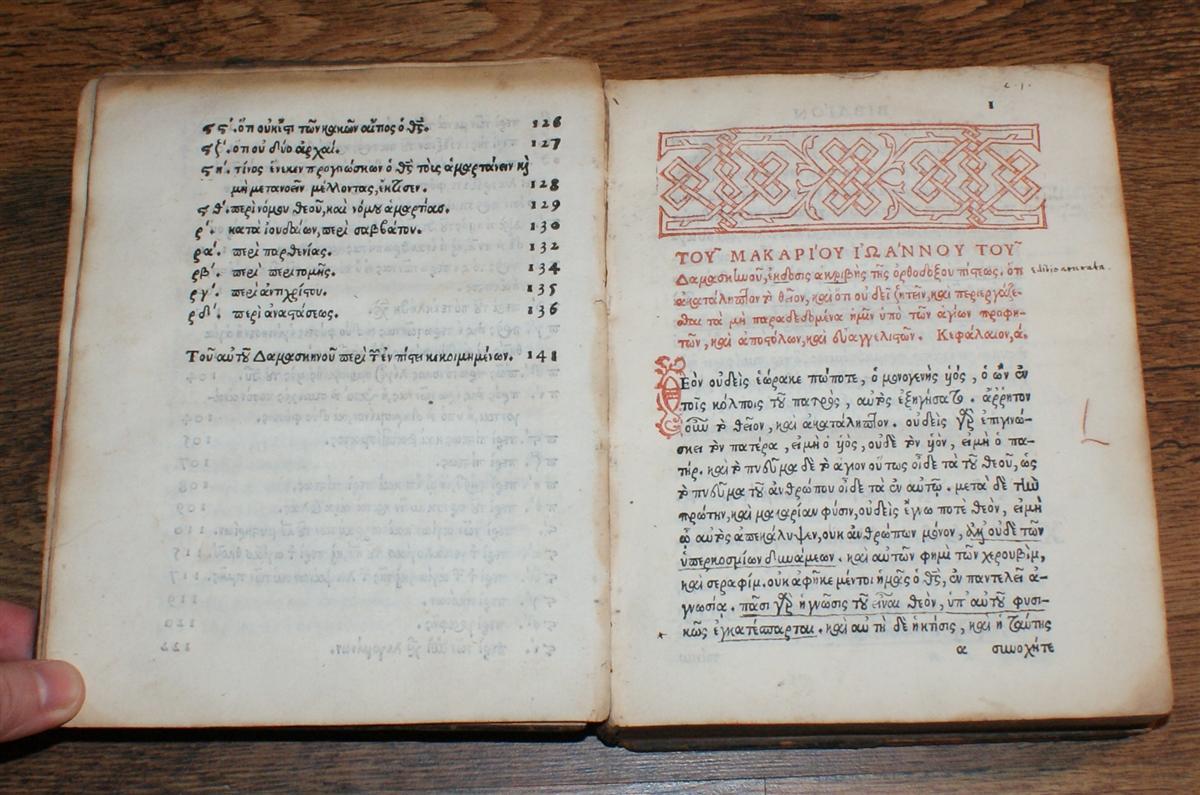 ϛϛ΄. ὅτι οὐκ ἔστι τῶν κακῶν αἴτιος ὁ θς̅. 126
ϛζ΄. ὅτι οὐ δύο ἀρχαί. 127
ϛη΄. τίνος ἕνεκεν προγινώσκων ὁ θς̅ τοὺς ἁμαρτάνειν καὶ
μὴ μετανοεῖν μέλλοντας, ἔκτισεν. 128
ϛθ΄. περὶ νόμου θεοῦ, καὶ νόμου ἁμαρτίας. 129
ρ΄. κατὰ ἰουδαίων, περὶ σαββάτου. 130
ρα΄. περὶ παρθενίας. 132
ρβ΄. περὶ περιτομῆς. 134
ργ΄. περὶ ἀντιχρίστου. 135
ρδ΄. περὶ ἀναστάσεως. 136
Τοῦ αὐτοῦ Δαμασκηνοῦ περὶ τῶν ἐν πίστει κεκοιμημένων. 141
1
ΤΟΥ͂ ΜΑΚΑΡΊΟΥ ἸΩΆΝΝΟΥ ΤΟΥ͂
Δαμασκηνοῦ, ἔκδοσις ἀκριβὴς τῆς ὀρθοδόξου πίστεως. ὅτι
editio accurata.
ἀκατάληπτον τὸ θεῖον, καὶ ὅτι οὐ δεῖ ζητεῖν, καὶ περιεργάζε-
σθαι τὰ μὴ παραδεδομένα ἡμῖν ὑπὸ τῶν ἁγίων προφη-
τῶν, καὶ ἀποστόλων, καὶ εὐαγγελιστῶν. Κεφάλαιον, ά.
ΘΕΟΝ οὐδεὶς ἑώρακε πώποτε, ὁ μονογενὴς υἱὸς, ὁ ὢν ἐν
τοῖς κόλποις τοῦ πατρὸς, αὐτὸς ἐξηγήσατο. ἄρρητον
οὖν τὸ θεῖον, καὶ ἀκατάληπτον. οὐδεὶς γὰρ ἐπιγινώ-
σκει τὸν πατέρα, εἰ μὴ ὁ υἱὸς, οὐδὲ τὸν υἱὸν, εἰ μὴ ὁ πα-
τήρ. καὶ τὸ πνεῦμα δὲ τὸ ἅγιον οὕτως οἶδε τὰ τοῦ θεοῦ, ὡς
τὸ πνεῦμα τοῦ ἀνθρώπου οἶδε τὰ ἐν αὐτῷ. μετὰ δὲ τὴν
πρώτην, καὶ μακαρίαν φύσιν, οὐδεὶς ἔγνω ποτὲ θεὸν, εἰ μὴ
ᾧ αὐτὸς ἀπεκάλυψεν, οὐκ ἀνθρώπων μόνον, ἀλλ' οὐδὲ τῶν
ὑπερκοσμίων δυνάμεων. καὶ αὐτῶν φημὶ τῶν χερουβὶμ,
καὶ σεραφίμ. οὐκ ἀφῆκε μέντοι ἡμᾶς ὁ θς̅, ἐν παντελεῖ ἀ-
γνωσίᾳ. πᾶσι γὰρ ἡ γνῶσις τοῦ εἶναι θεὸν, ὑπ' αὐτοῦ φυσι-
κῶς ἐγκατέσπαρται. καὶ αὐτὴ δὲ ἡ κτίσις, καὶ ἡ ταύτης
α συνοχή τε